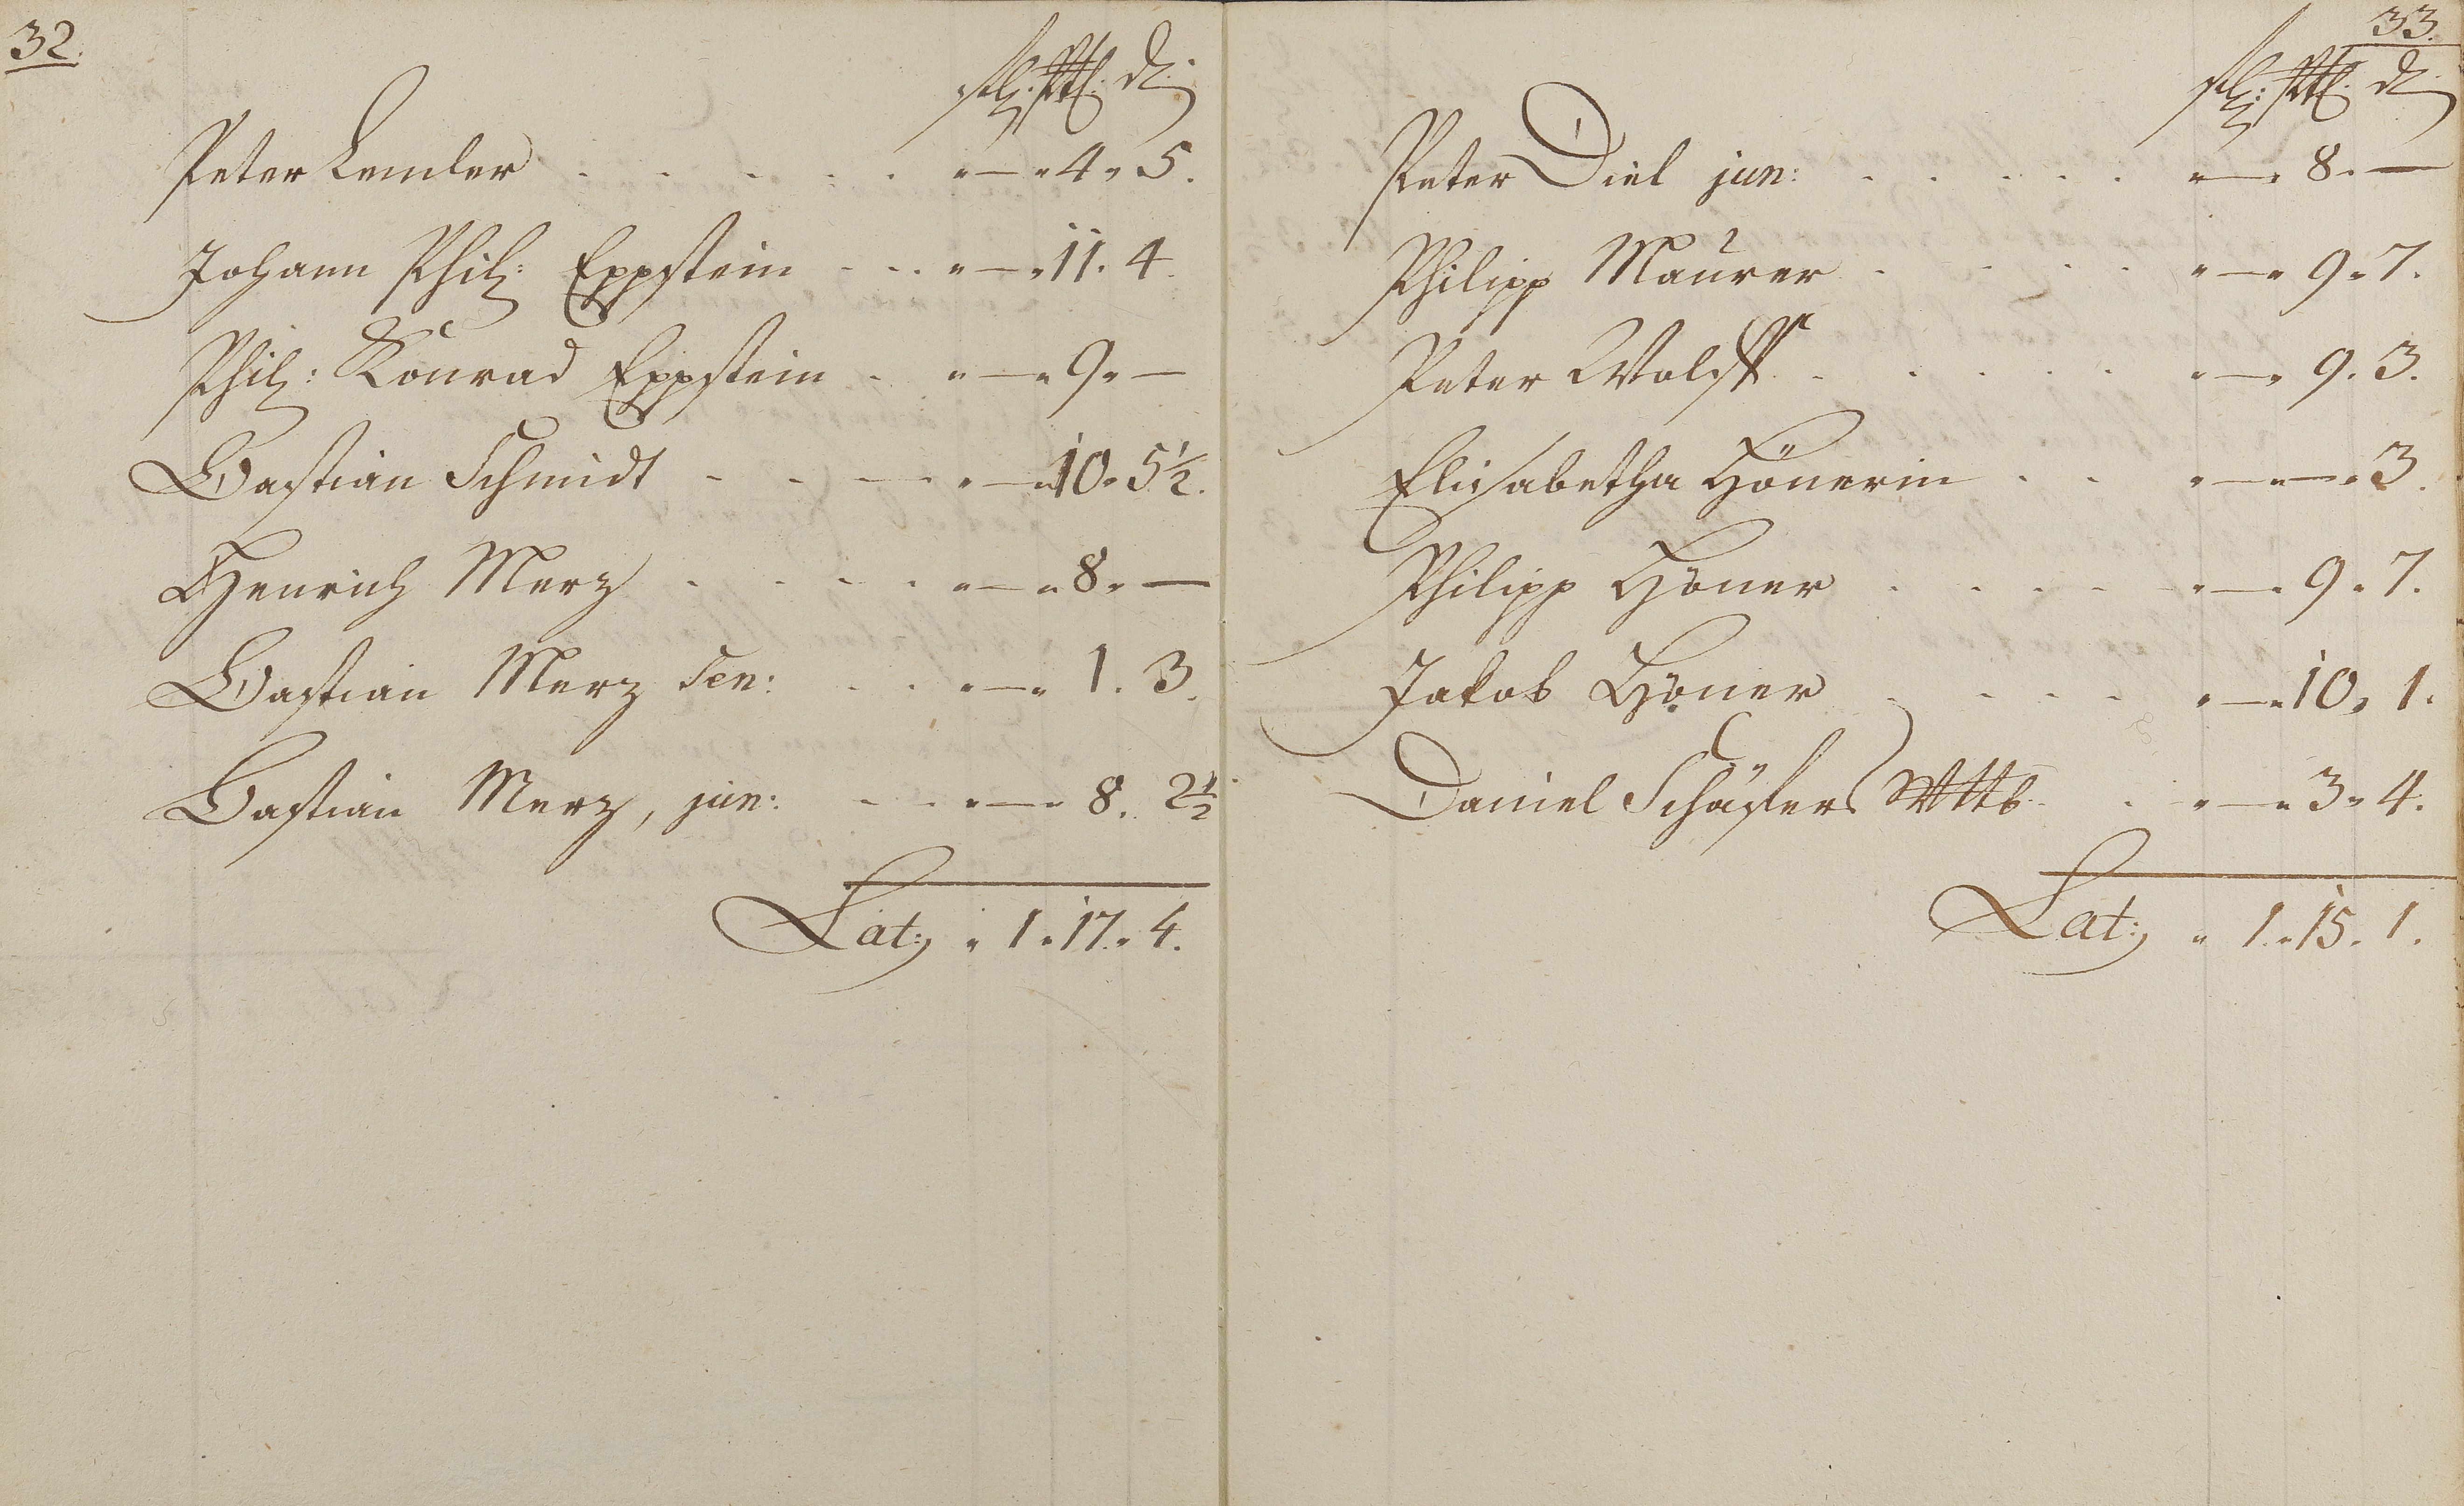 32.
Rth: Alb: d:
Peter Lemler . . . . . " — " 4 " 5.
Johann Phil: Eppstein . . . " — " 11. 4.
Phil: Konrad Eppstein . " — " 9 " —
Bastian Schmidt . . . " — " 10 " 5 1/2.
Henrich Merz . . . . " — " 8 " —
Bastian Merz Sen: . . " — " 1. 3.
Bastian Merz, jun: . . " — " 8. 2 1/2
Lat: " 1 " 17 " 4.
33.
d:
Peter Diel jun: . . . . . " — " 8. —
Philipp Maurer . . . . . " — " 9 " 7.
Peter Wolff . . . . . " — " 9. 3.
Elisabetha Hönerin . . " — " — " 3.
Philipp Höner . . . . " — " 9 " 7.
Jakob Höner . . . . " — " 10 " 1.
Daniel Schäfers Wttb. . " — " 3 " 4.
Lat: " 1 " 15. 1.